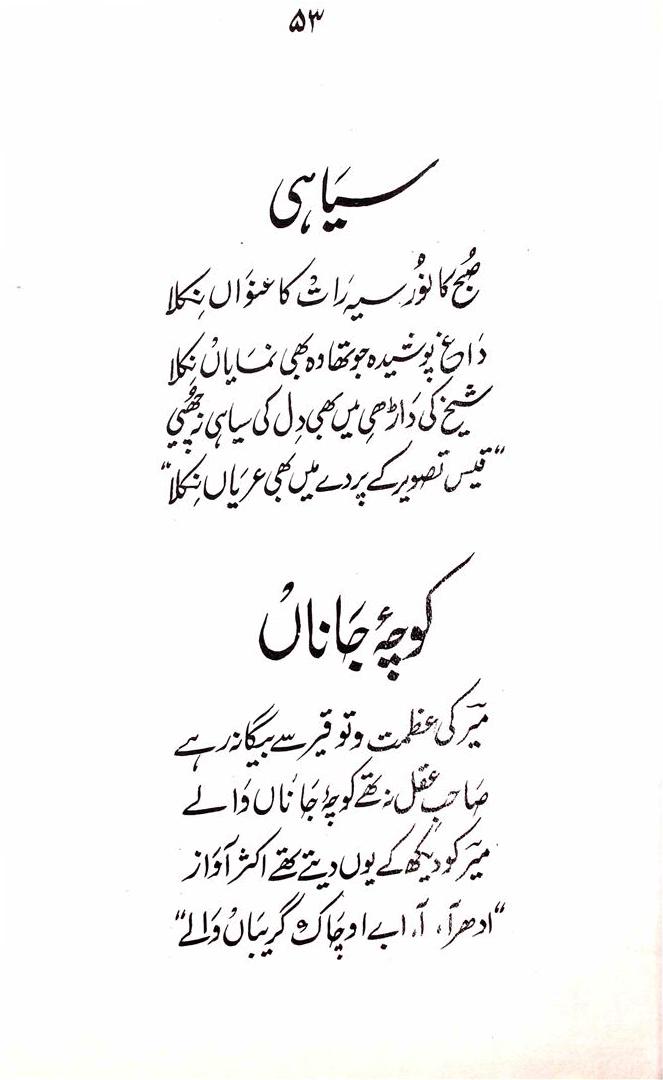 ۵۳
سیاہی
صُبح کا نُور سیہ رَات کا عنوَاں نِکلا
دَاغ پوشیدہ جو تھا وہ بھی نمایاں نِکلا
شیخ کی دَاڑھی میں بھی دِل کی سیاہی نہ چھُپی
"قیس تصویر کے پردے میں بھی عریاں نِکلا"
کوچۂ جَاناں
میرؔ کی عظمت و توقیر سے بیگانہ رہے
صَاحبِ عقل نہ تھے کوچۂ جَاناں وَالے
میرؔ کو دیکھ کے یوں دیتے تھے اکثر آوَاز
"ادھر آ، آ، ابے او چَاک گریبَاں وَالے"